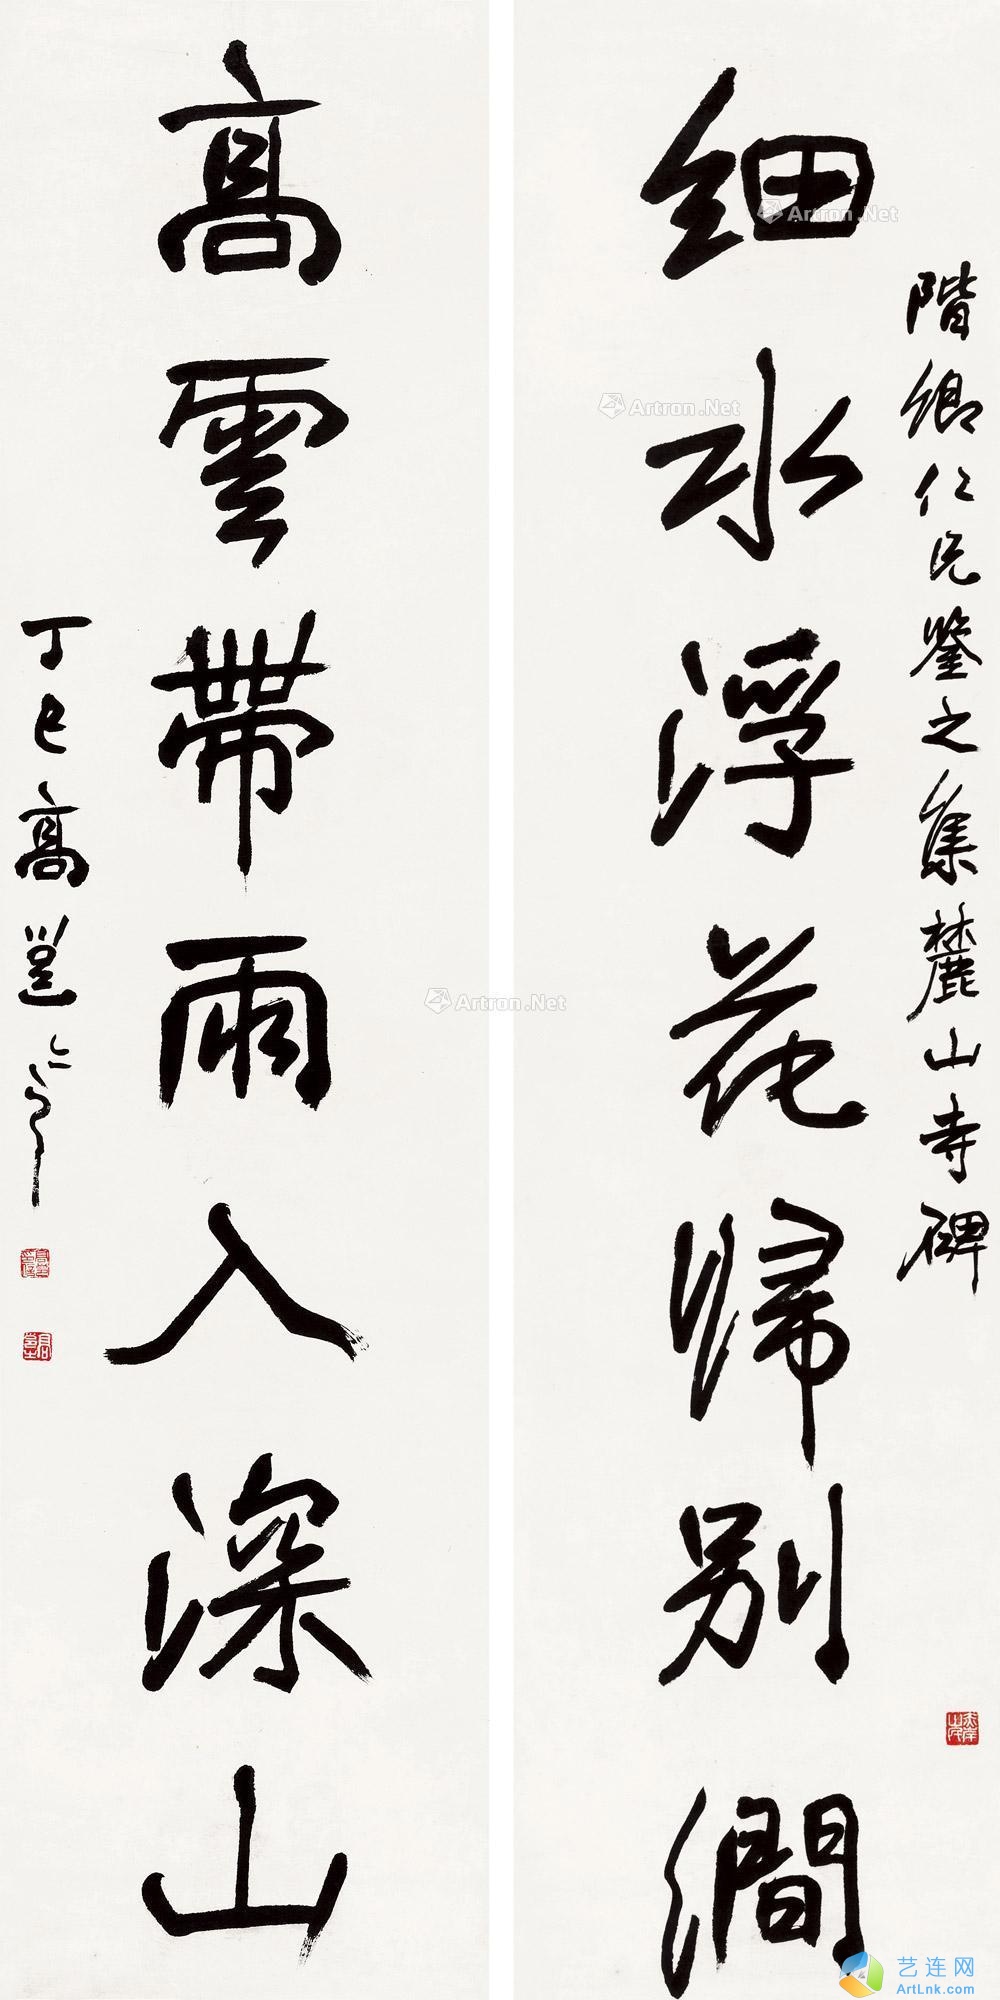 階卿仁兄鑒之集麓山寺碑
細水浮花歸別澗
高雲帶雨入深山
丁巳高邕
Artron.Net
Artron.Net
Artron.Net
艺连网
ArtLnk.com